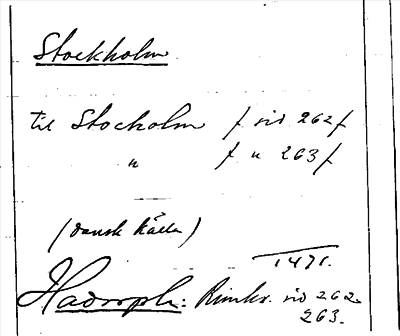 Stockholm
til Stocholm / sid 262/
" / " 263/
(dansk källa)
1471.
Hadorph: Rimkr. sid 262.
263.